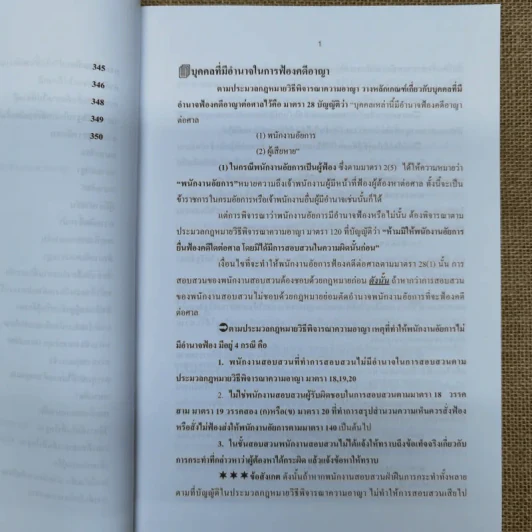 345
346
348
349
350
1
บุคคลที่มีอำนาจในการฟ้องคดีอาญา
ตามประมวลกฎหมายวิธีพิจารณาความอาญา วางหลักเกณฑ์เกี่ยวกับบุคคลที่มี
อำนาจฟ้องคดีอาญาต่อศาลไว้คือ มาตรา 28 บัญญัติว่า "บุคคลเหล่านี้มีอำนาจฟ้องคดีอาญา
ต่อศาล
(1) พนักงานอัยการ
(2) ผู้เสียหาย"
(1) ในกรณีพนักงานอัยการเป็นผู้ฟ้อง ซึ่งตามมาตรา 2(5) ได้ให้ความหมายว่า
"พนักงานอัยการ"หมายความถึงเจ้าพนักงานผู้มีหน้าที่ฟ้องผู้ต้องหาต่อศาล ทั้งนี้จะเป็น
ข้าราชการในกรมอัยการหรือเจ้าพนักงานอื่นผู้มีอำนาจเช่นนั้นก็ได้
แต่การพิจารณาว่าพนักงานอัยการมีอำนาจฟ้องหรือไม่นั้น ต้องพิจารณาตาม
ประมวลกฎหมายวิธีพิจารณาความอาญา มาตรา 120 ที่บัญญัติว่า "ห้ามมิให้พนักงานอัยการ
ยื่นฟ้องคดีใดต่อศาล โดยมิได้มีการสอบสวนในความผิดนั้นก่อน"
เงื่อนไขที่จะทำให้พนักงานอัยการฟ้องคดีต่อศาลตามมาตรา 28(1) นั้น การ
สอบสวนของพนักงานสอบสวนต้องชอบด้วยกฎหมายก่อน ดังนั้น ถ้าหากว่าการสอบสวน
ของพนักงานสอบสวนไม่ชอบด้วยกฎหมายย่อมตัดอำนาจพนักงานอัยการที่จะฟ้องคดี
ต่อศาล
ตามประมวลกฎหมายวิธีพิจารณาความอาญา เหตุที่ทำให้พนักงานอัยการไม่
มีอำนาจฟ้อง มีอยู่ 4 กรณี คือ
1. พนักงานสอบสวนที่ทำการสอบสวนไม่มีอำนาจในการสอบสวนตาม
ประมวลกฎหมายวิธีพิจารณาความอาญา มาตรา 18,19,20
2. ไม่ใช่พนักงานสอบสวนผู้รับผิดชอบในการสอบสวนตามมาตรา 18 วรรค
สาม มาตรา 19 วรรคสอง (ก)หรือ(ข) มาตรา 20 ที่ทำการสรุปสำนวนความเห็นควรสั่งฟ้อง
หรือสั่งไม่ฟ้องส่งให้พนักงานอัยการตามมาตรา 140 เป็นต้นไป
3. ในชั้นสอบสวนพนักงานสอบสวนไม่ได้แจ้งให้ทราบถึงข้อเท็จจริงเกี่ยวกับ
การกระทำที่กล่าวหาว่าผู้ต้องหาได้กระผิด แล้วแจ้งข้อหาให้ทราบ
✶✶✶ข้อสังเกต ดังนั้นถ้าหากพนักงานสอบสวนฝ่าฝืนการกระทำทั้งหลาย
ตามที่บัญญัติในประมวลกฎหมายวิธีพิจารณาความอาญา ไม่ทำให้การสอบสวนเสียไป